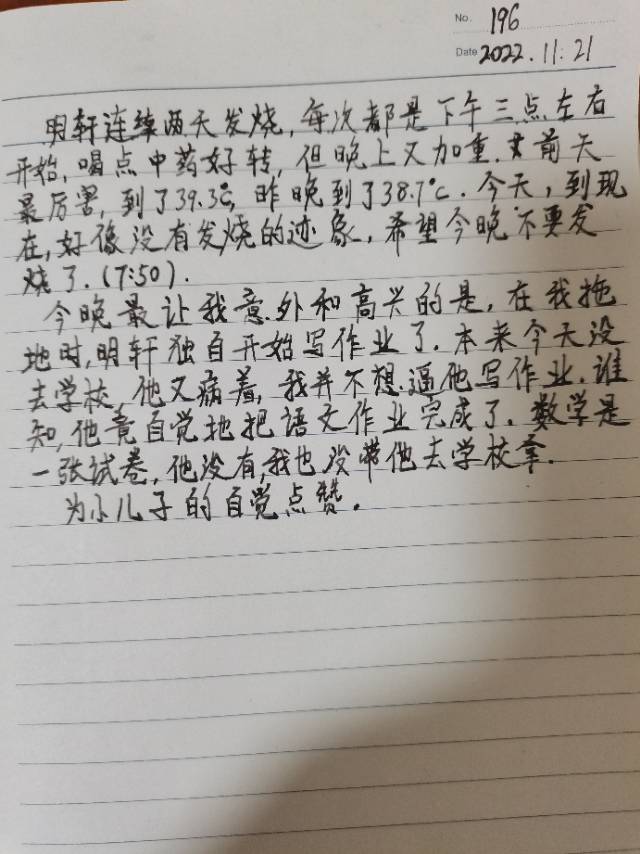 No. 196
Date 2022.11.21
明轩连续两天发烧,每次都是下午三点左右
开始,喝点中药好转,但晚上又加重.前天
最厉害,到了39.3℃,昨晚到了38.7℃.今天,到现
在,好像没有发烧的迹象,希望今晚不要发
烧了.(7:50).
今晚最让我意外和高兴的是,在我拖
地时,明轩独自开始写作业了.本来今天没
去学校,他又病着,我并不想逼他写作业.谁
知,他竟自觉地把语文作业完成了.数学是
一张试卷,他没有,我也没带他去学校拿.
为小儿子的自觉点赞.